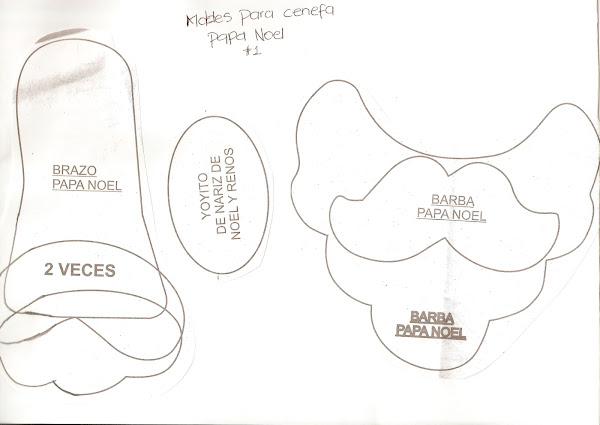 Moldes para cenefa
Papa Noel
#1
BRAZO
PAPA NOEL
2 VECES
YOYITO
DE NARIZ DE
NOEL Y RENOS
BARBA
PAPA NOEL
BARBA
PAPA NOEL